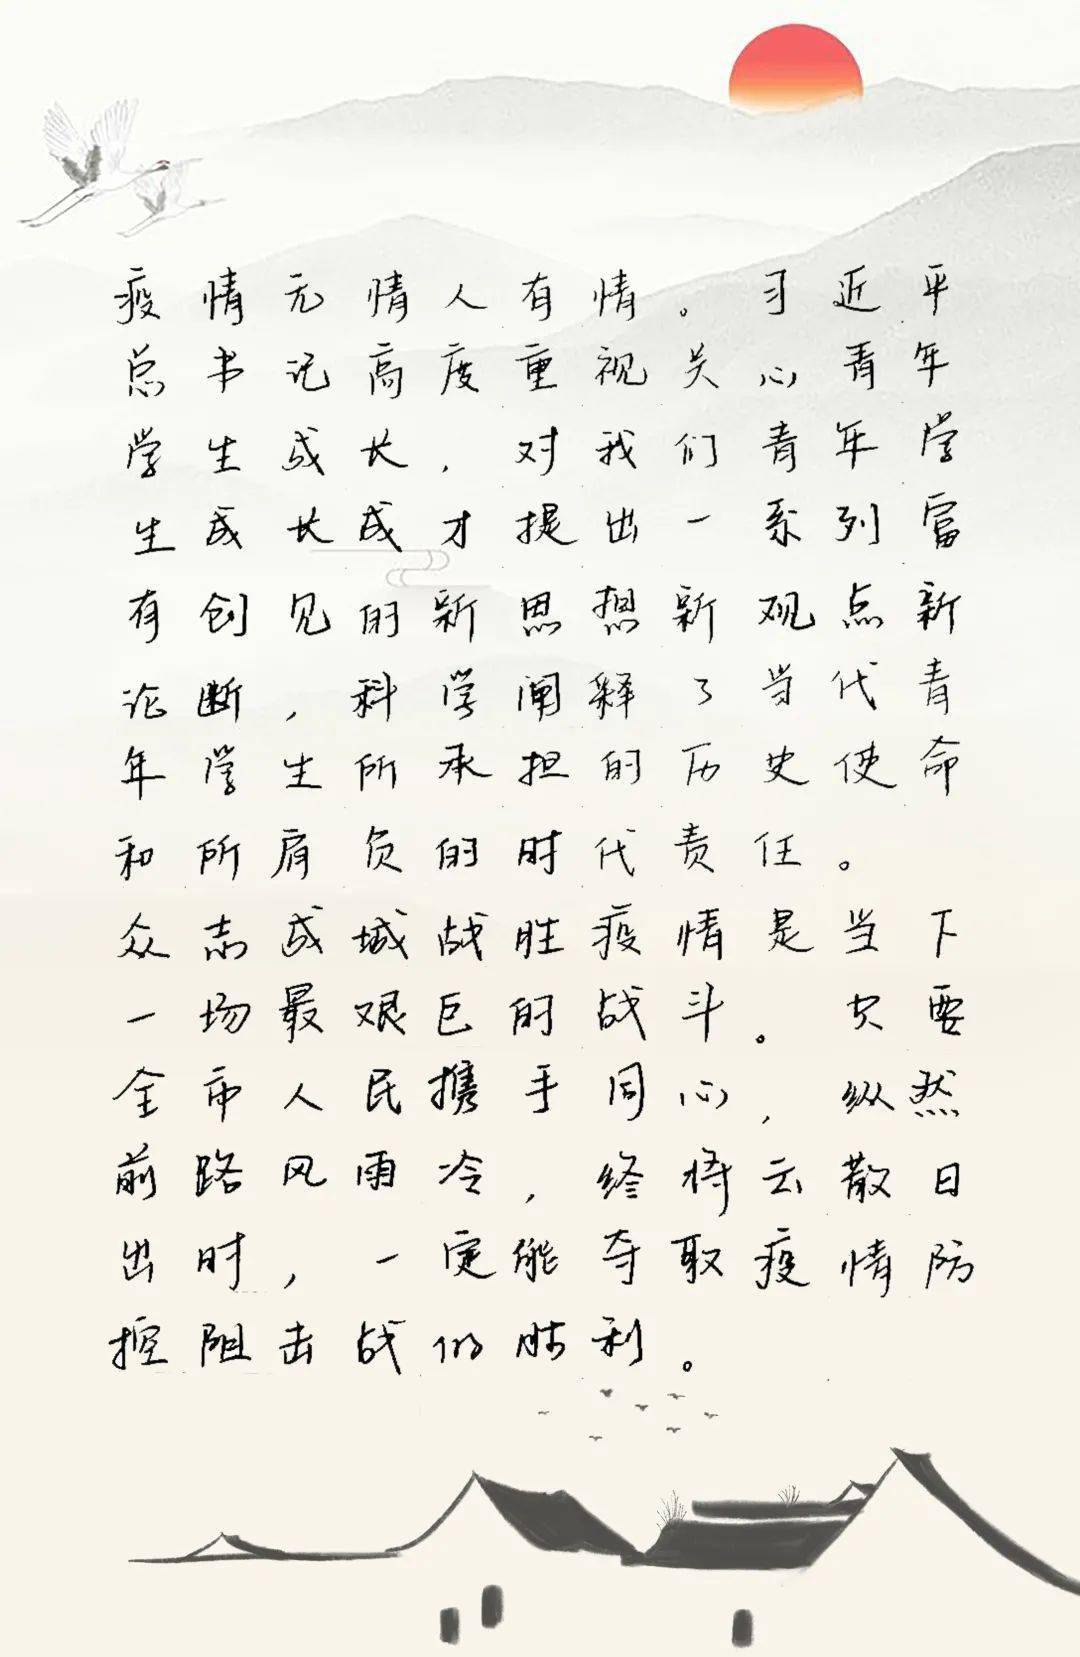 疫情无情人有情。习近平
总书记高度重视关心青年
学生成长，对我们青年学
生成长成才提出一系列富
有创见的新思想新观点新
论断，科学阐释了当代青
年学生所承担的历史使命
和所肩负的时代责任。
众志成城战胜疫情是当下
一场最艰巨的战斗。只要
全市人民携手同心，纵然
前路风雨冷，终将云散日
出时，一定能夺取疫情防
控阻击战的胜利。